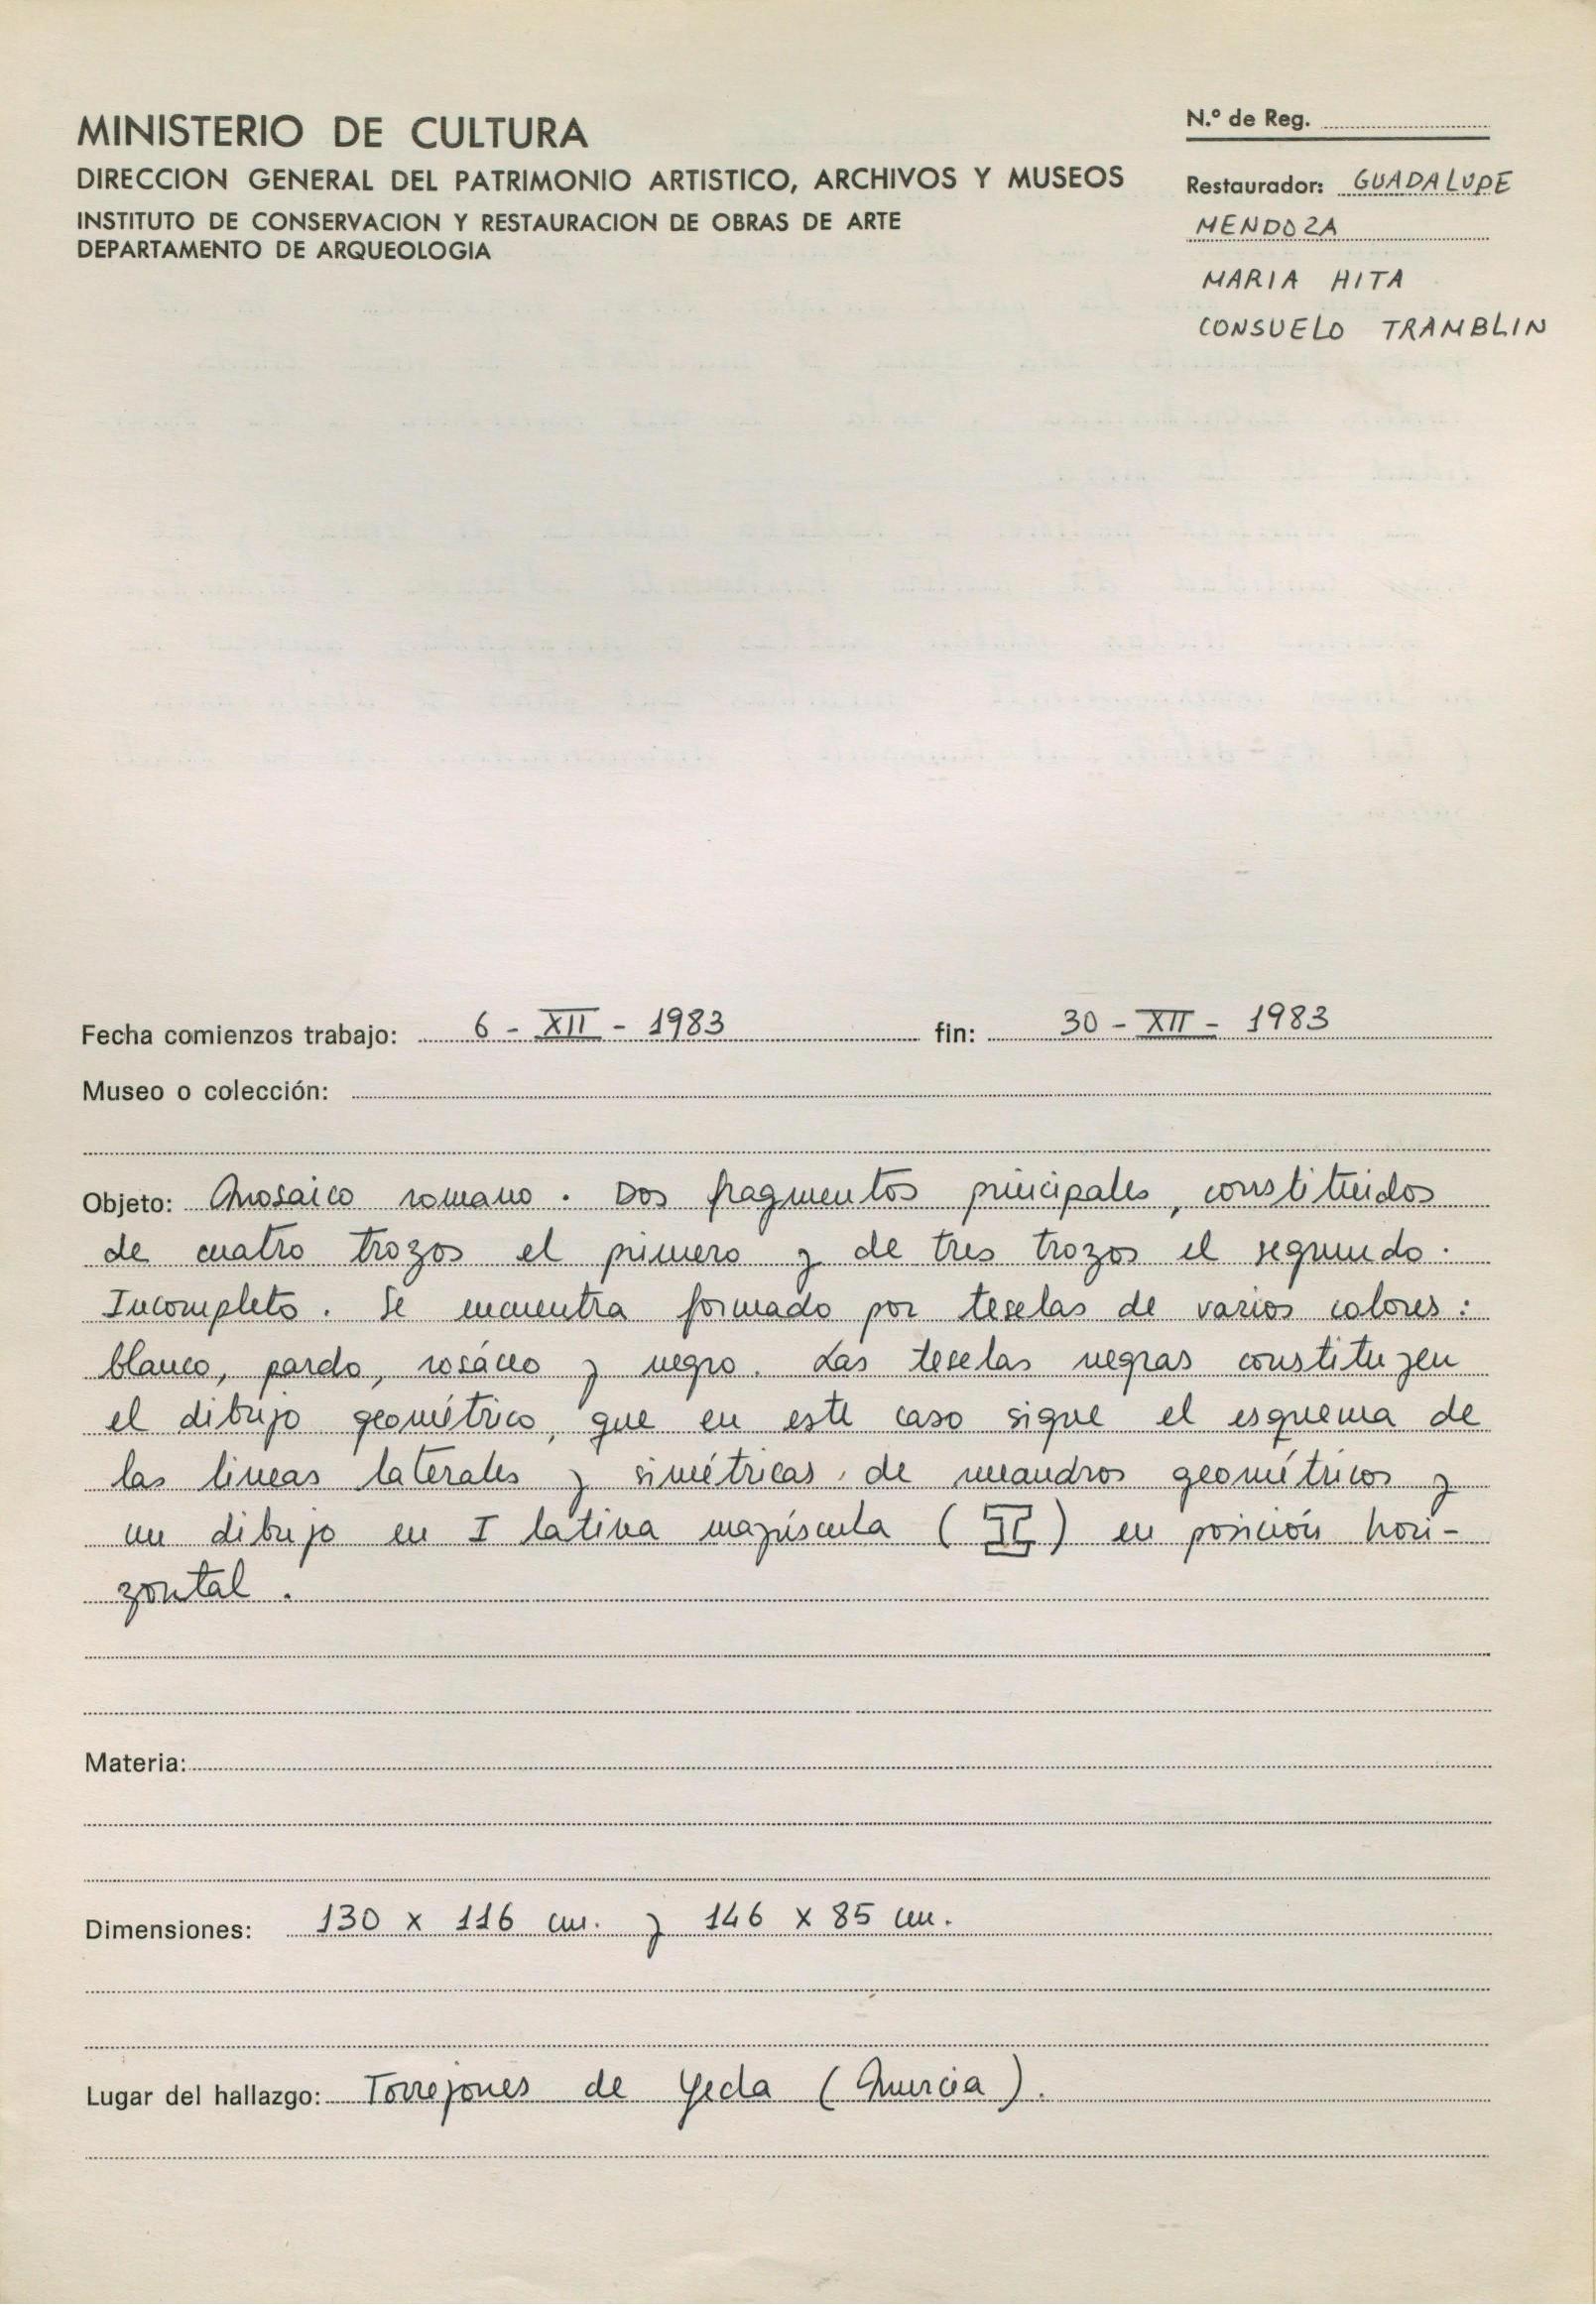 MINISTERIO DE CULTURA
DIRECCION GENERAL DEL PATRIMONIO ARTISTICO, ARCHIVOS Y MUSEOS
INSTITUTO DE CONSERVACION Y RESTAURACION DE OBRAS DE ARTE
DEPARTAMENTO DE ARQUEOLOGIA
N.º de Reg.
Restaurador: GUADALUPE
MENDOZA
MARIA HITA
CONSUELO TRAMBLIN
Fecha comienzos trabajo: 6 - XII - 1983 fin: 30 - XII - 1983
Museo o colección:
Objeto: Mosaico romano. Dos fragmentos principales, constituidos
de cuatro trozos el primero y de tres trozos el segundo.
Incompleto. Se encuentra formado por teselas de varios colores:
blanco, pardo, rosáceo y negro. Las teselas negras constituyen
el dibujo geométrico, que en este caso sigue el esquema de
las lineas laterales y simétricas, de meandros geométricos y
un dibujo en I latina mayúscula (I) en posición hori-
zontal.
Materia:
Dimensiones: 130 x 116 cm. y 146 x 85 cm.
Lugar del hallazgo: Torrejones de Yecla (Murcia).